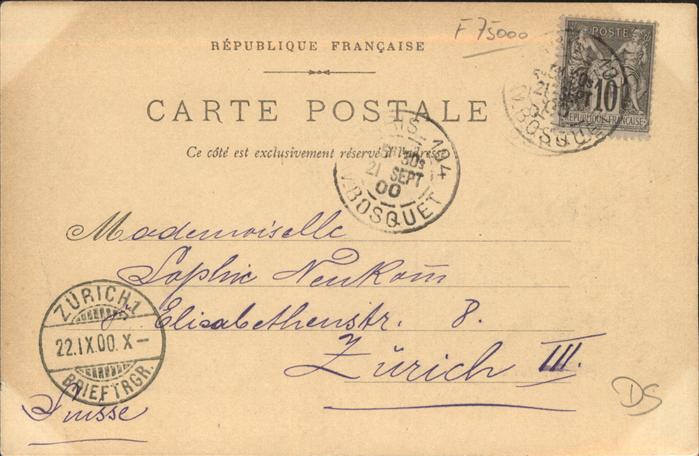 F 75000
RÉPUBLIQUE FRANÇAISE
POSTE
10
REPUBLIQUE FRANÇAISE
CARTE POSTALE
Ce côté est exclusivement réservé à l'adresse
PARIS 104
30S
21 SEPT
00
BOSQUET
BOSQUET
Mademoiselle
Sophie Neukom
Elisabethenstr. 8.
Zürich III.
Suisse
ZÜRICH 1
22.IX.00. X-
BRIEFTRGR.
DS